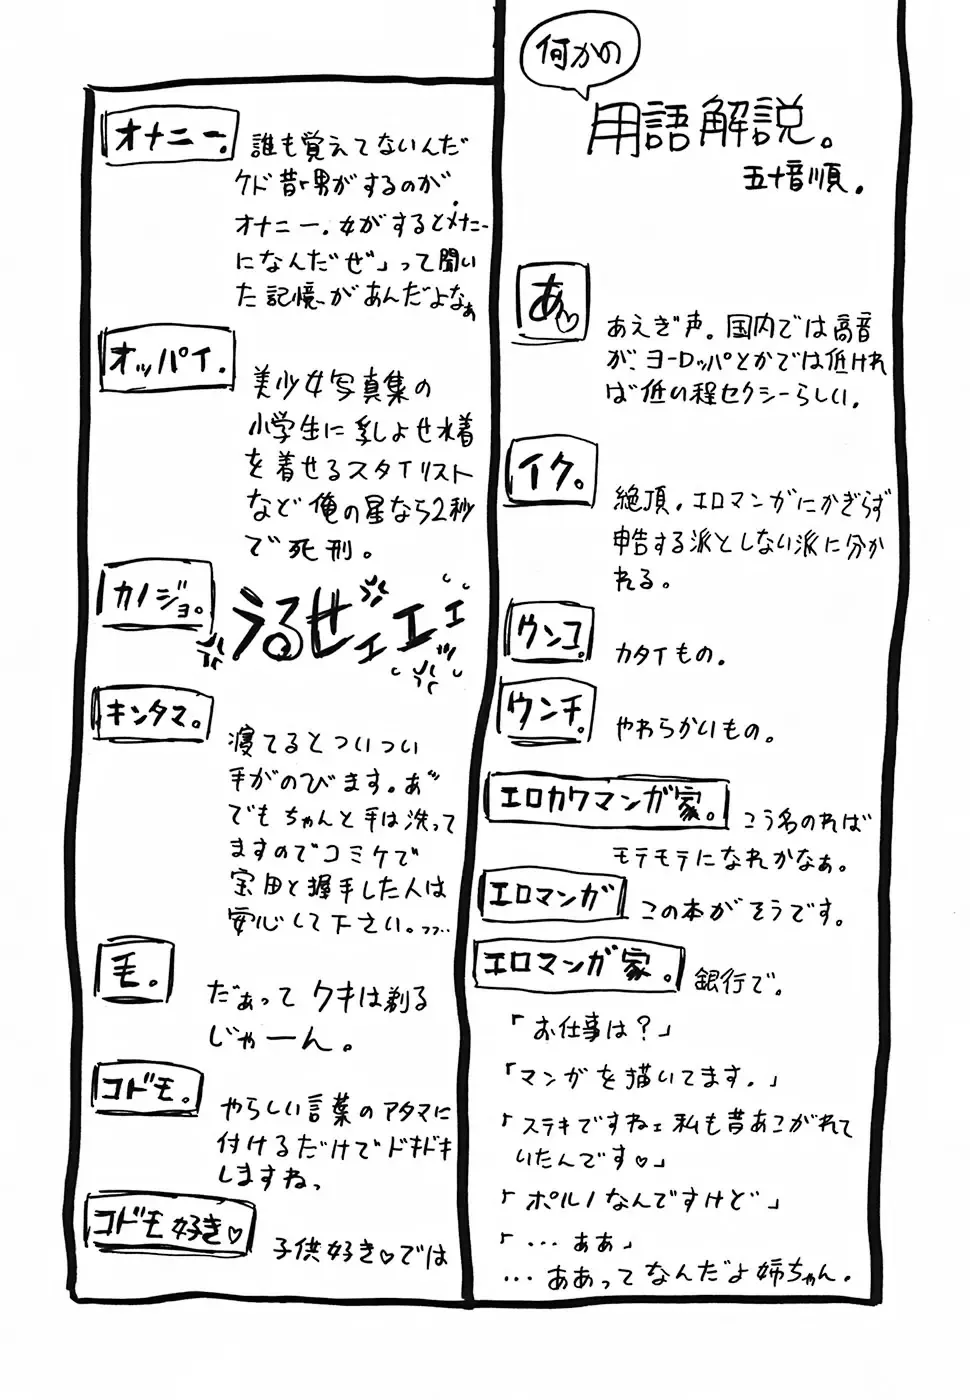 何かの
用語解説。
五十音順。
あ♡
あえぎ声。国内では高音
が、ヨーロッパとかでは低けれ
ば低い程セクシーらしい。
イク。
絶頂。エロマンガにかぎらず
申告する派としない派に分か
れる。
ウンコ。
カタイもの。
ウンチ。
やわらかいもの。
エロカワマンガ家。
こう名のれば
モテモテになれかなぁ。
エロマンガ
この本がそうです。
エロマンガ家。
銀行で。
「お仕事は?」
「マンガを描いてます。」
「ステキですねェ私も昔あこがれて
いたんです♡」
「ポルノなんですけど」
「...ぁぁ」
...ああってなんだよ姉ちゃん。
オナニー。
誰も覚えてないんだ
ケド昔「男がするのが、
オナニー。女がするとメナニー
になんだぜ」って聞い
た記憶があんだよなぁ
オッパイ。
美少女写真集の
小学生に乳しよせ水着
を着せるスタイリスト
など俺の星なら2秒
で死刑。
カノジョ。
うるせェエェ
キンタマ。
寝てるとついつい
手がのびます。あ″
でもちゃんと手は洗って
ますのでコミケで
宝田と握手した人は
安心して下さい。ララ...
毛。
だぁって クキは剃る
じゃーん。